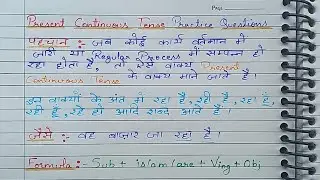 Present Continuous Tense Practice Questions
पहचान :- जब कोई कार्य वर्तमान में
जारी या Regular Process में सम्पन्न हो
रहा होता है, तो ऐसे वाक्य Present
Continuous Tense के वाक्य माने जाते हैं।
इन वाक्यों के अंत में रहा है, रही है, रहा है,
रही है, रहे हो आदि शब्द आते हैं।
जैसे :- वह बाजार जा रहा है।
Formula:- Sub + is/am/are + Ving + Obj